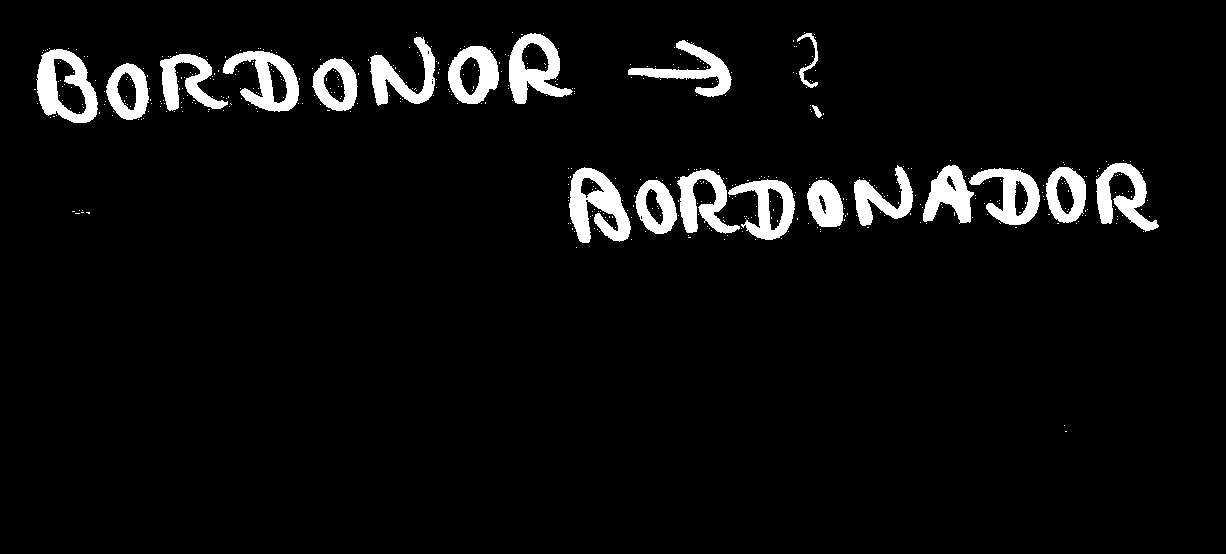 BORDONOR → ?
BORDONADOR